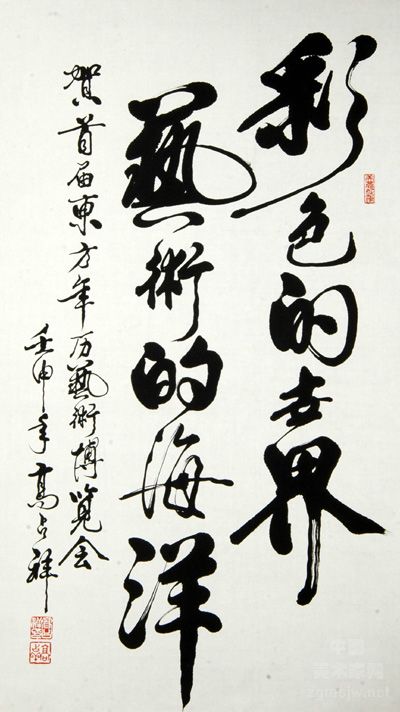 彩色的世界
藝術的海洋
贺首届東方年历藝術博览会
壬申年高占祥
中国
美术家网
zgmsjw.net